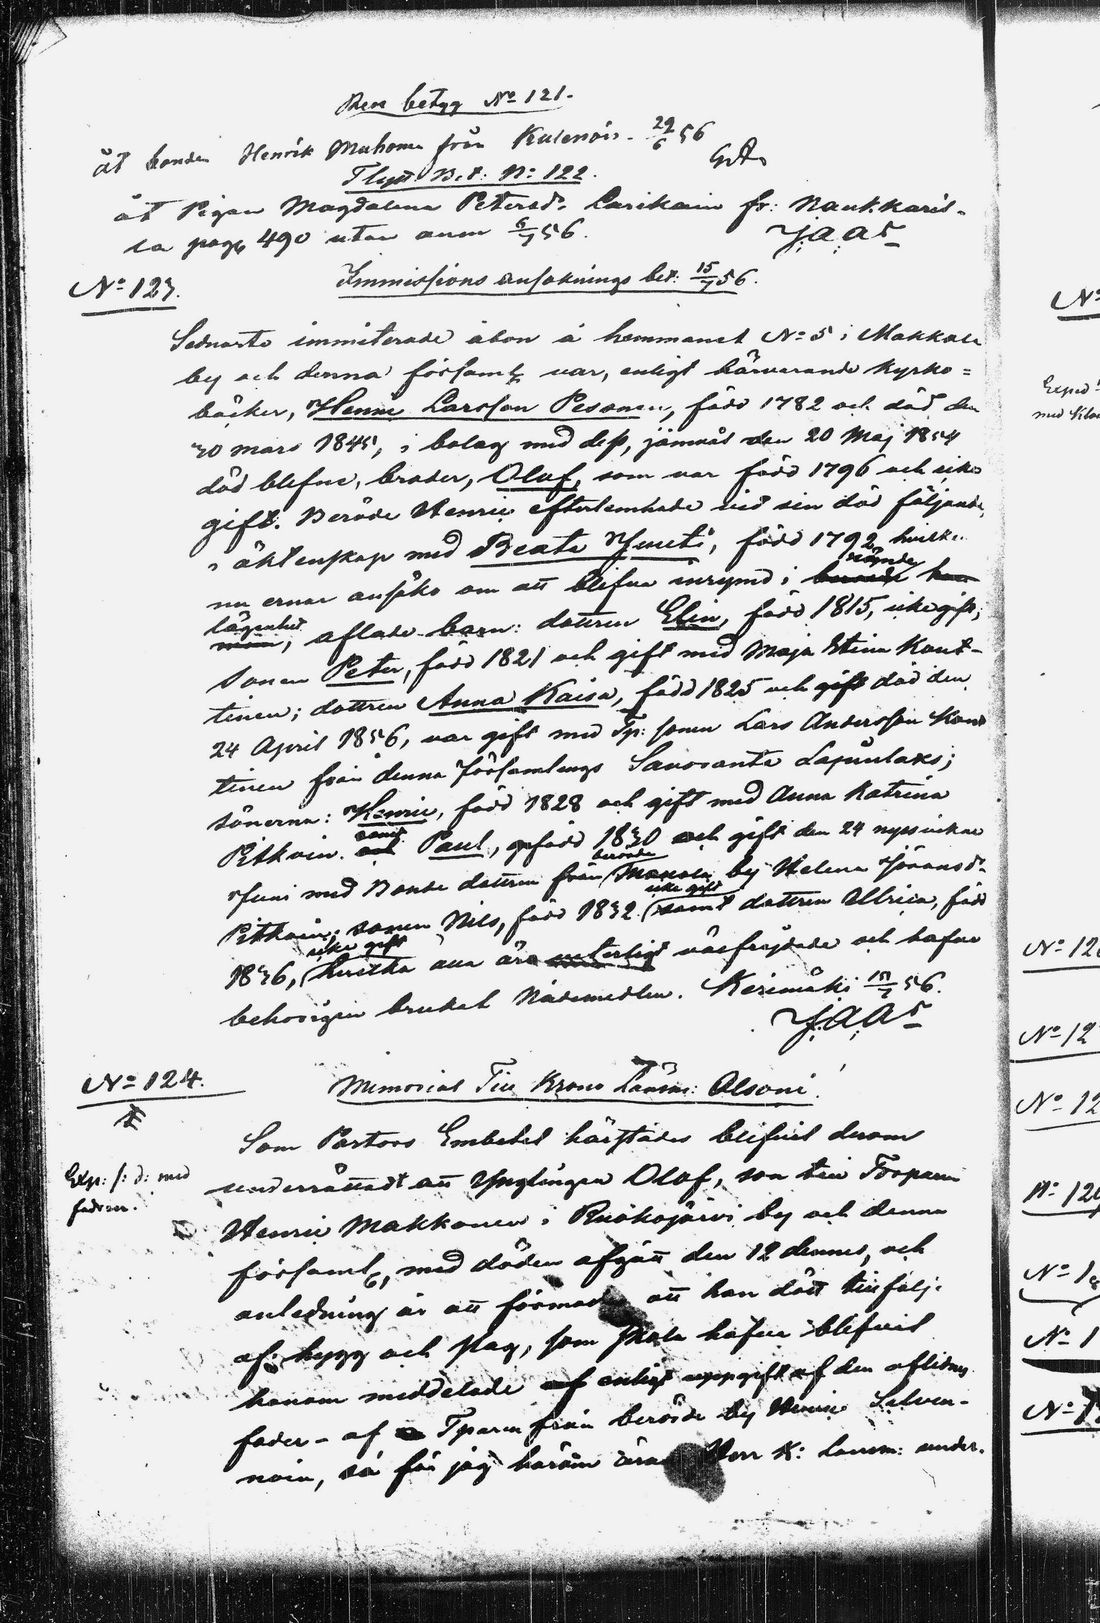 Rese betyg No 121.
åt bonden Henrik Muhonen från 29/6 56
Flytt. Bet: No: 122.
åt Pigan Magdalena Petersd:r Larikain fr: Naukkaris-
la pag 490 utan anm 6/7 56.
J. A. A:s
No 123. Immissions ansöknings bet: 15/7 56.
Sednaste immiterade åbon å hemmanet No 5 i Makkola
by och denna församl. var, enligt härvarande Kyrko=
böcker, Henric Larsson Pesonen, född 1782 och död den
30 mars 1845, i bolag med dess, jemväl den 20 Maj 1854
död blefne, broder, Olof, som var född 1796 och icke
gift. Berörde Henric efterlemnade vid sin död följande,
i äktenskap med Beata Juuti, född 1792, hvilken
nu ernar ansöka om att blifva inrymd i nämnde
lägenhet, aflade barn: dottren Elin, född 1815, icke gift;
sonen Peter, född 1821 och gift med Maja Stina Kont-
tinen; dottren Anna Kaisa, född 1825 och gift död den
24 April 1856, var gift med Tp: sonen Lars Andersson Kont
tinen från denna församlings Savoranta Lapunlaks;
sönerna: Henric, född 1828 och gift med Anna Katrina
Pitkoin. samt Paul, född 1830 och gift den 24 nyssvikne
Juni med Bonde dottren från berörde Makkola by Helena Jöransd:r
Pitkoin, sonen Nils, född 1832 icke gift samt dottren Ulrica, född
1836, icke gift, hvilka alla äro välfrejdade och hafva
behörigen brukat Nådemedlen. Kerimäki 15/7 56.
J. A. A:s
No 124. Memorial Till Krono Länsm: Olsoni!
Exp: s: d: med
fadren.
Som Pastors Embetet härstädes blifvit derom
underrättadt att Ynglingen Olof, son till Torparen
Henric Makkonen i Ruokojärvi by och denna
församl., med döden afgått den 12 dennes, och
anledning är att förmoda att han dött till följe
af hugg och slag, som skola hafva blifvit
honom meddelade enligt uppgift af den aflidnes
fader - af Tparen från berörde by Henric Silven-
noin, så får jag härom Herr K: Länsm: under-
Exped:
No 1
No 12
No 12
No 12
No 1
No 1
No 1